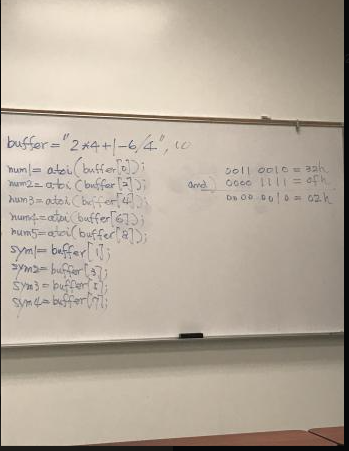 buffer = "2*4+1-6/4", 10
num1 = atoi(buffer[0]);
num2 = atoi(buffer[2]);
num3 = atoi(buffer[4]);
num4 = atoi(buffer[6]);
num5 = atoi(buffer[8]);
sym1 = buffer[1];
sym2 = buffer[3];
sym3 = buffer[5];
sym4 = buffer[7];
0011 0010 = 32h
and) 0000 1111 = 0fh
0000 0010 = 02h